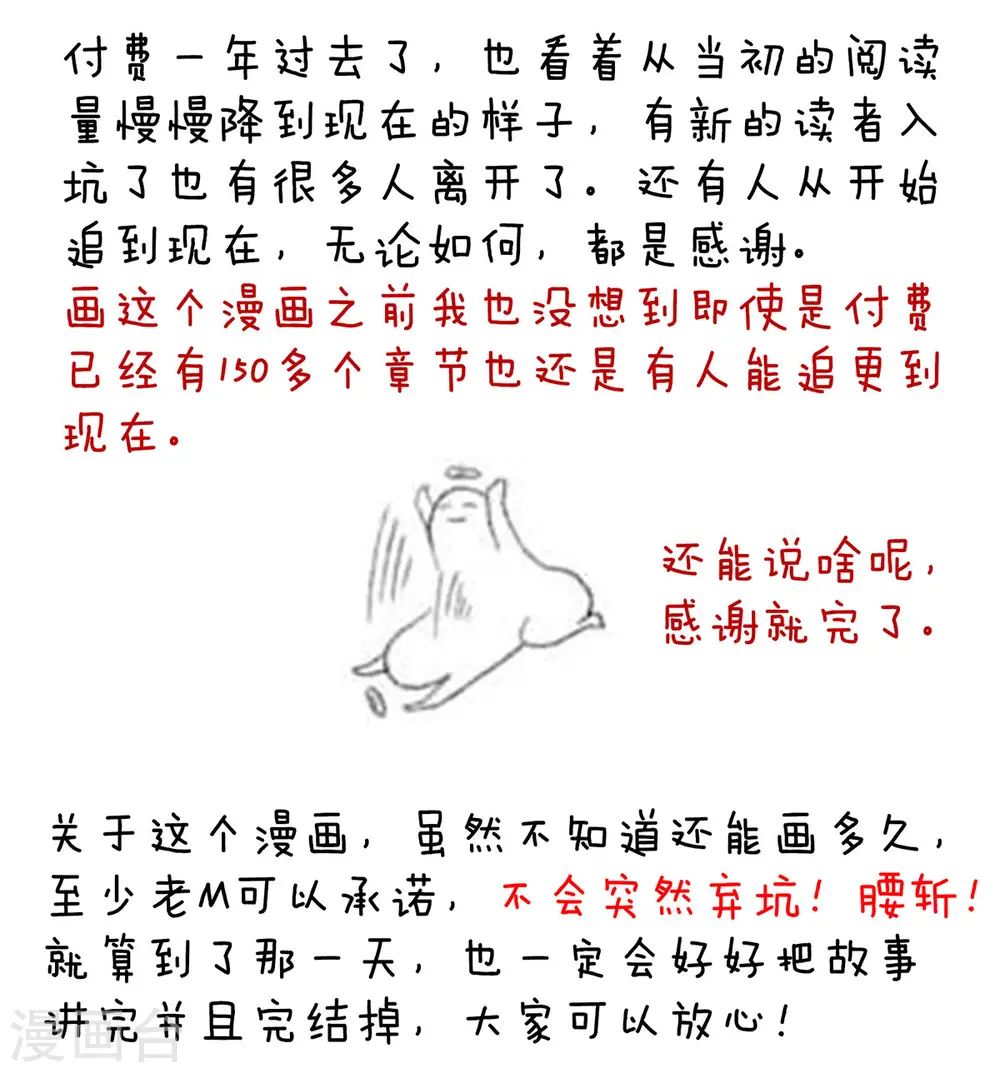 付费一年过去了，也看着从当初的阅读
量慢慢降到现在的样子，有新的读者入
坑了也有很多人离开了。还有人从开始
追到现在，无论如何，都是感谢。
画这个漫画之前我也没想到即使是付费
已经有150多个章节也还是有人能追更到
现在。
还能说啥呢，
感谢就完了。
关于这个漫画，虽然不知道还能画多久，
至少老M可以承诺，不会突然弃坑！腰斩！
就算到了那一天，也一定会好好把故事
讲完并且完结掉，大家可以放心！
漫画台